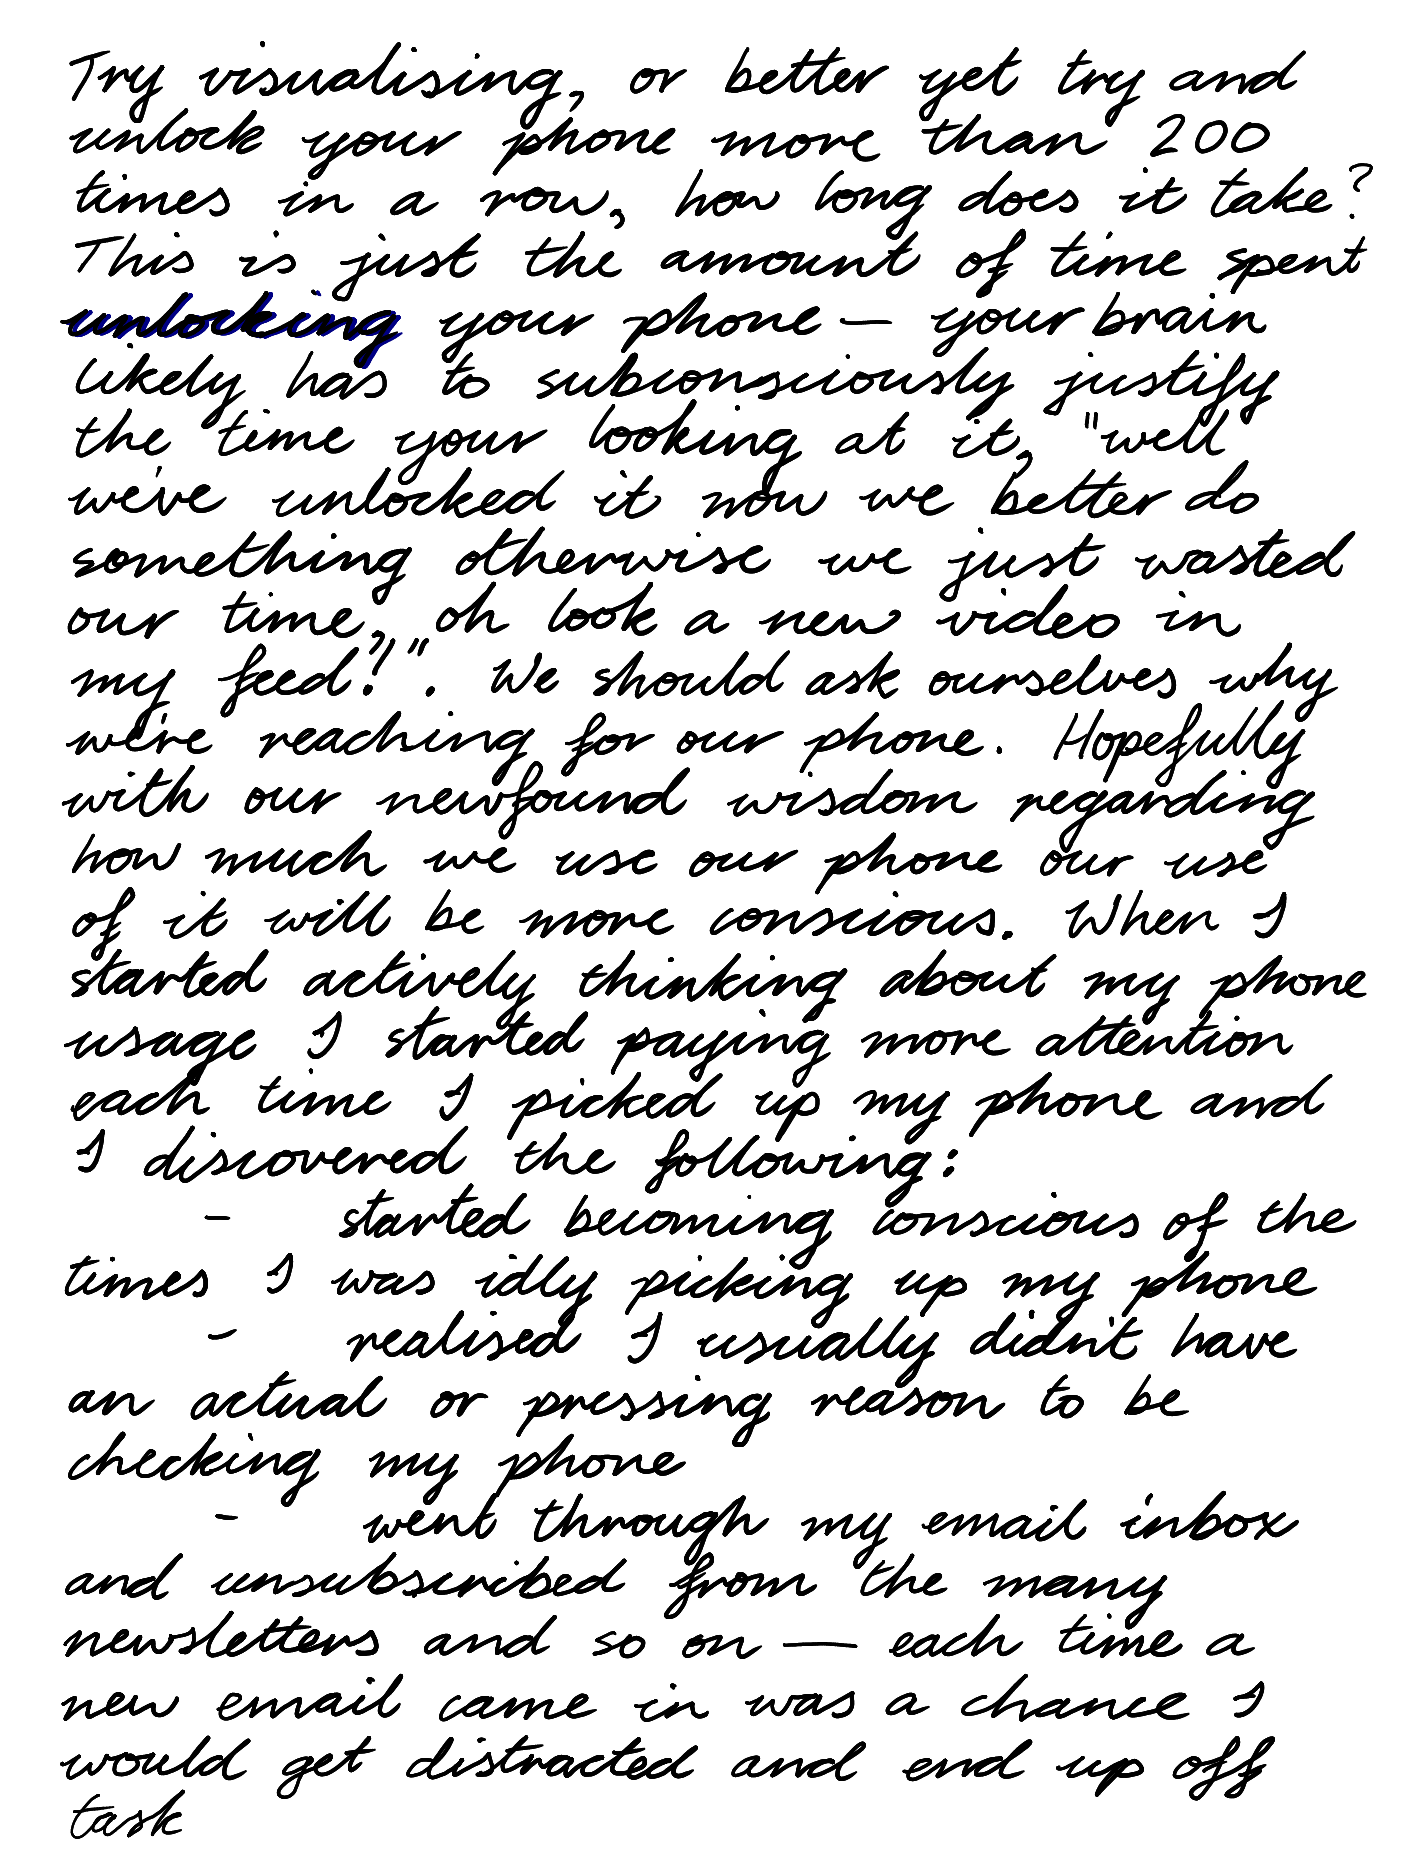 Try visualising, or better yet try and
unlock your phone more than 200
times in a row, how long does it take?
This is just the amount of time spent
unlocking your phone — your brain
likely has to subconsciously justify
the time your looking at it, "well
we've unlocked it now we better do
something otherwise we just wasted
our time, oh look a new video in
my feed!?". We should ask ourselves why
we're reaching for our phone. Hopefully
with our newfound wisdom regarding
how much we use our phone our use
of it will be more conscious. When I
started actively thinking about my phone
usage I started paying more attention
each time I picked up my phone and
I discovered the following:
- started becoming conscious of the
times I was idly picking up my phone
- realised I usually didn't have
an actual or pressing reason to be
checking my phone
- went through my email inbox
and unsubscribed from the many
newsletters and so on — each time a
new email came in was a chance I
would get distracted and end up off
task